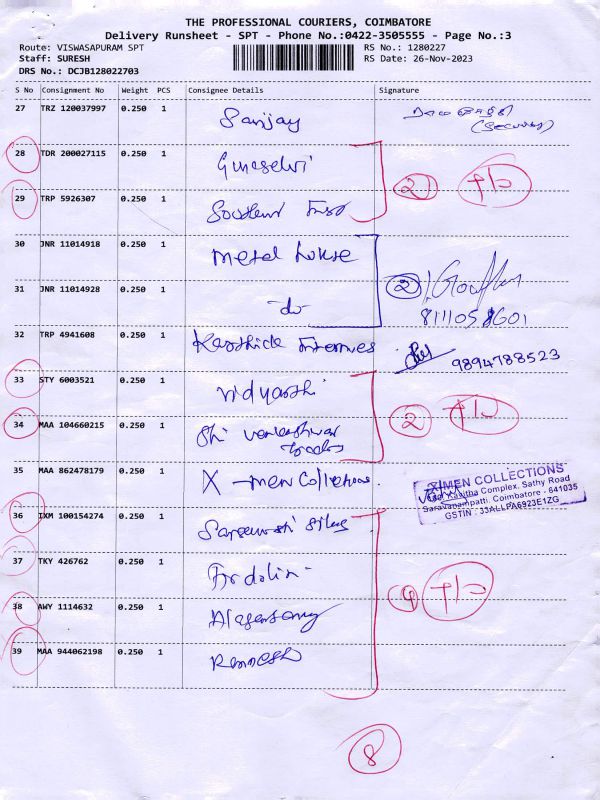 THE PROFESSIONAL COURIERS, COIMBATORE
Delivery Runsheet - SPT - Phone No.:0422-3505555 - Page No.:3
Route: VISWASAPURAM SPT RS No.: 1280227
Staff: SURESH RS Date: 26-Nov-2023
DRS No.: DCJB128022703
S No Consignment No Weight PCS Consignee Details Signature
27 TRZ 120037997 0.250 1 Sanjay
(Security)
28 TDR 200027115 0.250 1 Gunaselvi
2
29 TRP 5926307 0.250 1
30 JNR 11014918 0.250 1 Metal house
2
31 JNR 11014928 0.250 1 -do-
8111058601
32 TRP 4941608 0.250 1 Karthick
9894788523
33 STY 6003521 0.250 1 Vidyarthi
2
34 MAA 104660215 0.250 1 Shri Venkateshwar Traders
35 MAA 862478179 0.250 1 X-men Collections.
XIMEN COLLECTIONS
Kavitha Complex, Sathy Road
Saravanampatti, Coimbatore - 641035
GSTIN : 33ALLPA6923E1ZG
36 IXM 100154274 0.250 1
37 TKY 426762 0.250 1
4
38 AWY 1114632 0.250 1 Alagarsamy
39 MAA 944062198 0.250 1 Ramesh
8